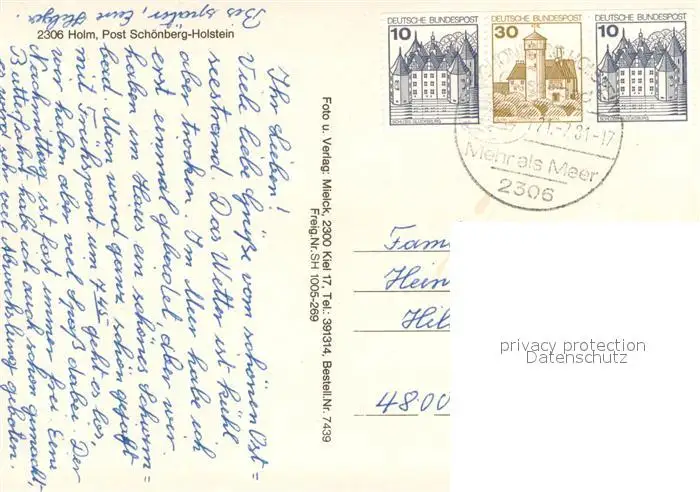 2306 Holm, Post Schönberg-Holstein
Ihr Lieben!
Viele liebe Grüße vom schönen Ost=
seestrand. Das Wetter ist kühl
aber trocken. Im Meer habe ich
erst einmal gebadet, aber wir
haben im Haus ein schönes Schwimm=
bad. Man wird ganz schön geschafft
mit Frühsport um 7.45 geht es los,
wir haben aber viel Spaß dabei. Der
Nachmittag ist fast immer frei. Eine
Butterfahrt habe ich auch schon gemacht,
es wird sehr viel Abwechslung geboten.
Bis später, Eure Helga
Foto u. Verlag: Mielck, 2300 Kiel 17, Tel.: 391314, Bestell.Nr. 7439
Freig.Nr.SH 1005-269
DEUTSCHE BUNDESPOST
10
SCHLOSS GLÜCKSBURG
DEUTSCHE BUNDESPOST
30
DEUTSCHE BUNDESPOST
10
SCHLOSS GLÜCKSBURG
81-17
Mehr als Meer
2306
Fam
Hein
Hil
4800
privacy protection
Datenschutz